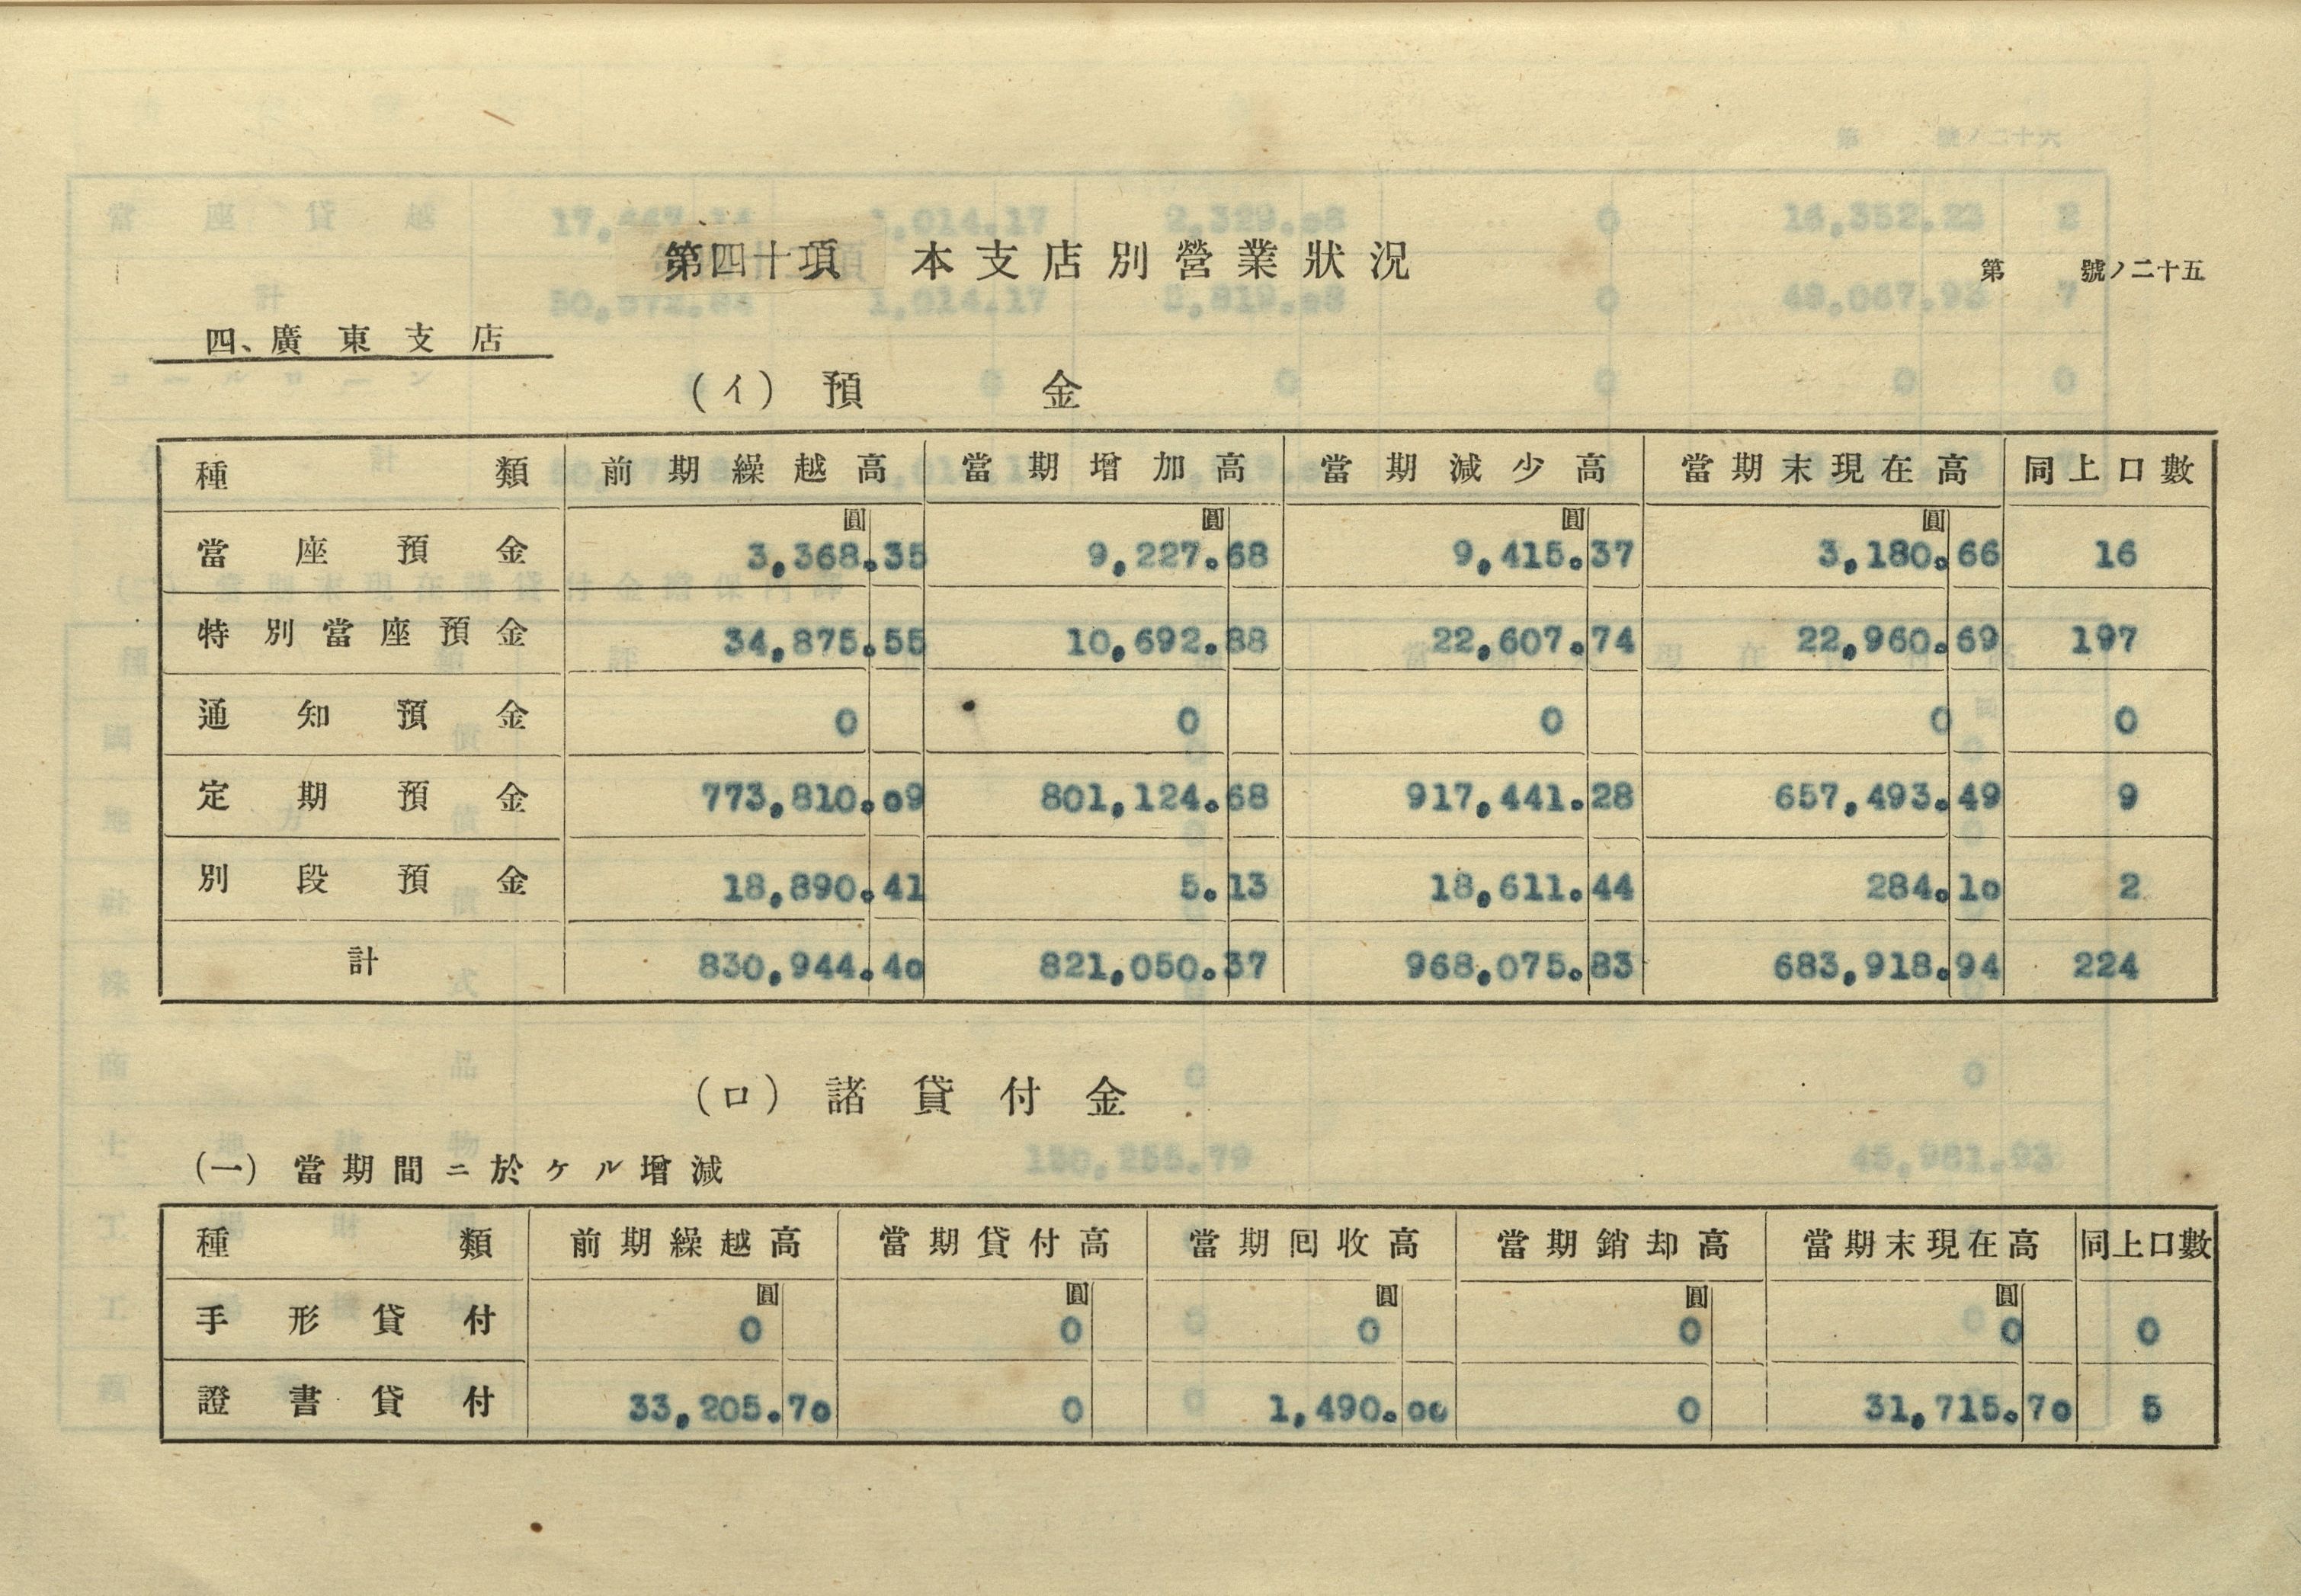 第四十項 本支店別營業狀況
第 號ノ二十五
四、廣東支店
(イ) 預金
種類 前期繰越高 當期增加高 當期減少高 當期末現在高 同上口數
圓 圓 圓 圓
當座預金 3,368.35 9,227.68 9,415.37 3,180.66 16
特別當座預金 34,875.55 10,692.88 22,607.74 22,960.69 197
通知預金 0 0 0 0 0
定期預金 773,810.09 801,124.68 917,441.28 657,493.49 9
別段預金 18,890.41 5.13 18,611.44 284.10 2
計 830,944.40 821,050.37 968,075.83 683,918.94 224
(ロ) 諸貸付金
(一) 當期間ニ於ケル增減
種類 前期繰越高 當期貸付高 當期回收高 當期銷却高 當期末現在高 同上口數
圓 圓 圓 圓 圓
手形貸付 0 0 0 0 0 0
證書貸付 33,205.70 0 1,490.00 0 31,715.70 5